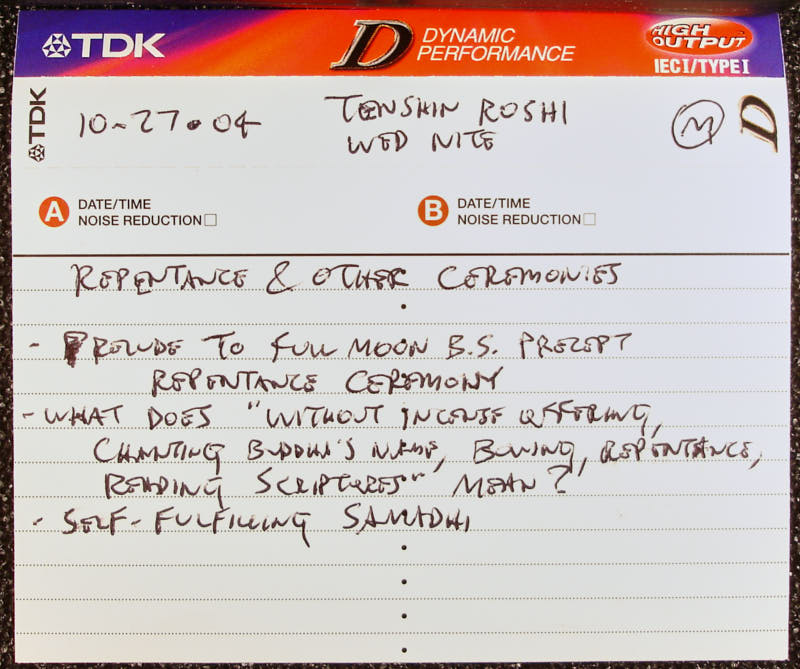 TDK
D DYNAMIC PERFORMANCE
HIGH OUTPUT
IECI/TYPEI
TDK
10-27-04
TENSHIN ROSHI
WED NITE
M
D
A DATE/TIME
NOISE REDUCTION
B DATE/TIME
NOISE REDUCTION
REPENTANCE & OTHER CEREMONIES
- PRELUDE TO FULL MOON B.S. PRECEPT
REPENTANCE CEREMONY
- WHAT DOES "WITHOUT INCENSE OFFERING,
CHANTING BUDDHA'S NAME, BOWING, REPENTANCE,
READING SCRIPTURES" MEAN?
- SELF-FULFILLING SAMADHI